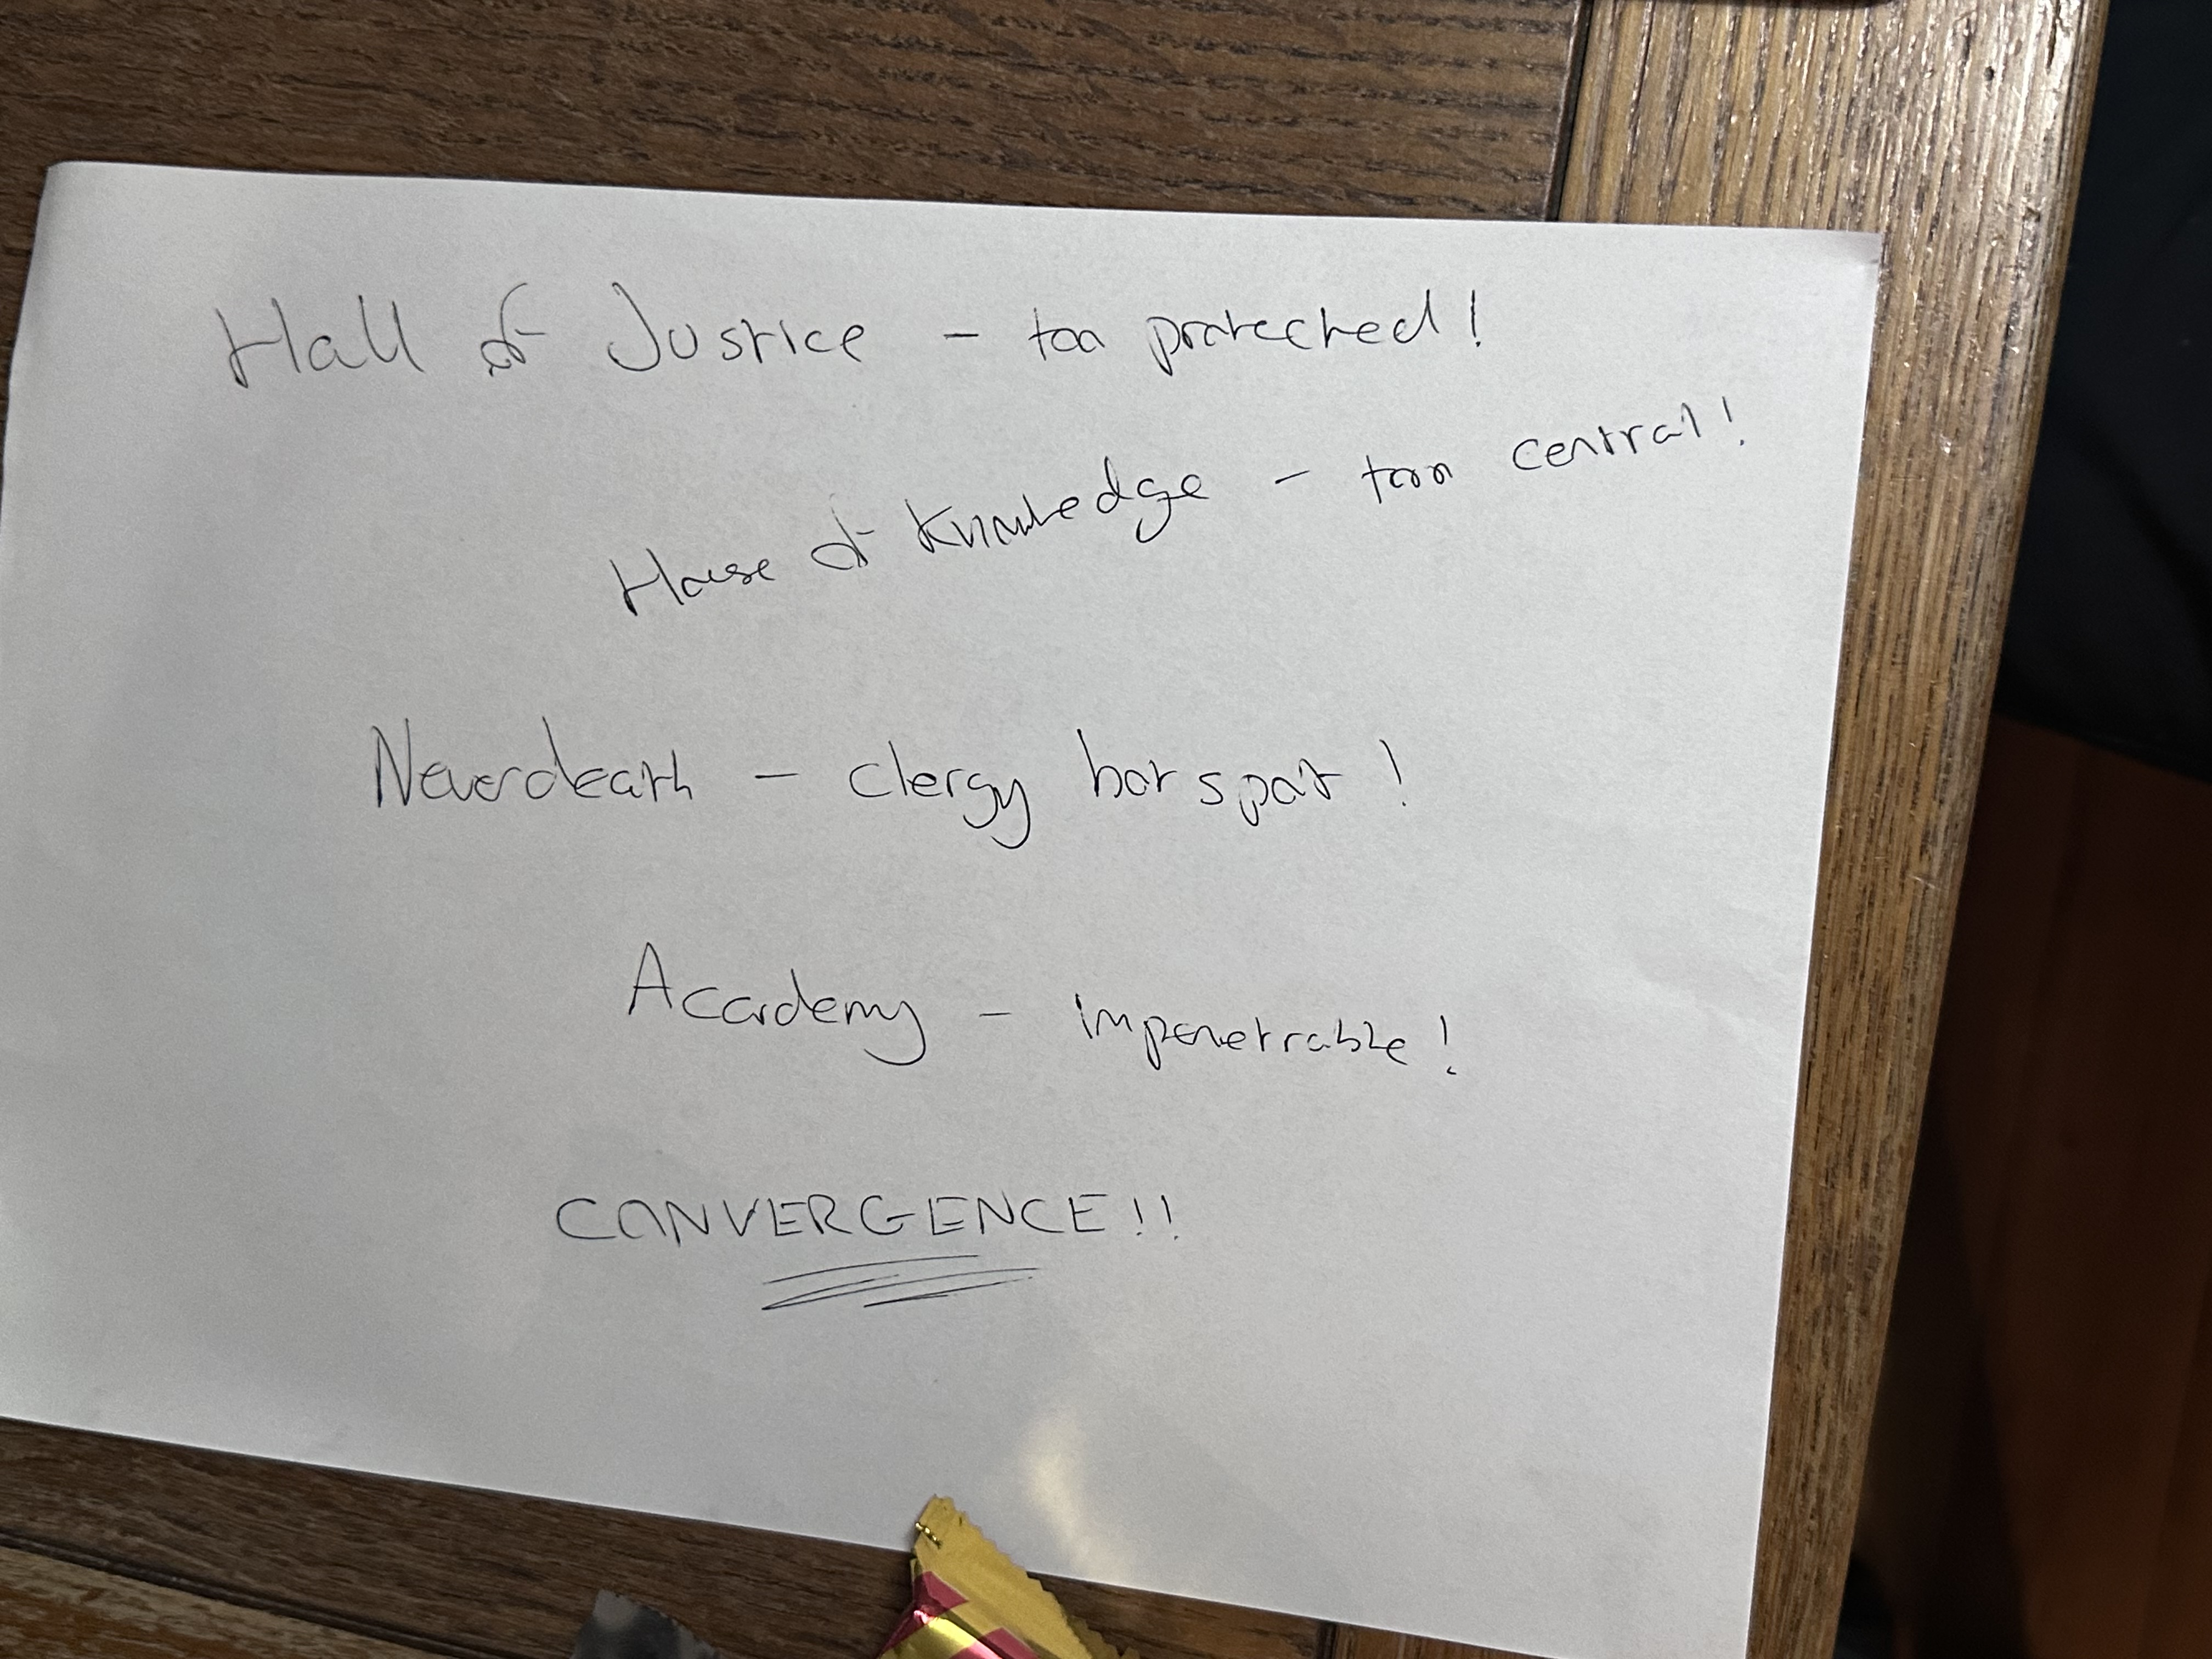 Hall of Justice - too protected!
House of Knowledge - too central!
Neverdeath - clergy hotspot!
Academy - impenetrable!
CONVERGENCE!!